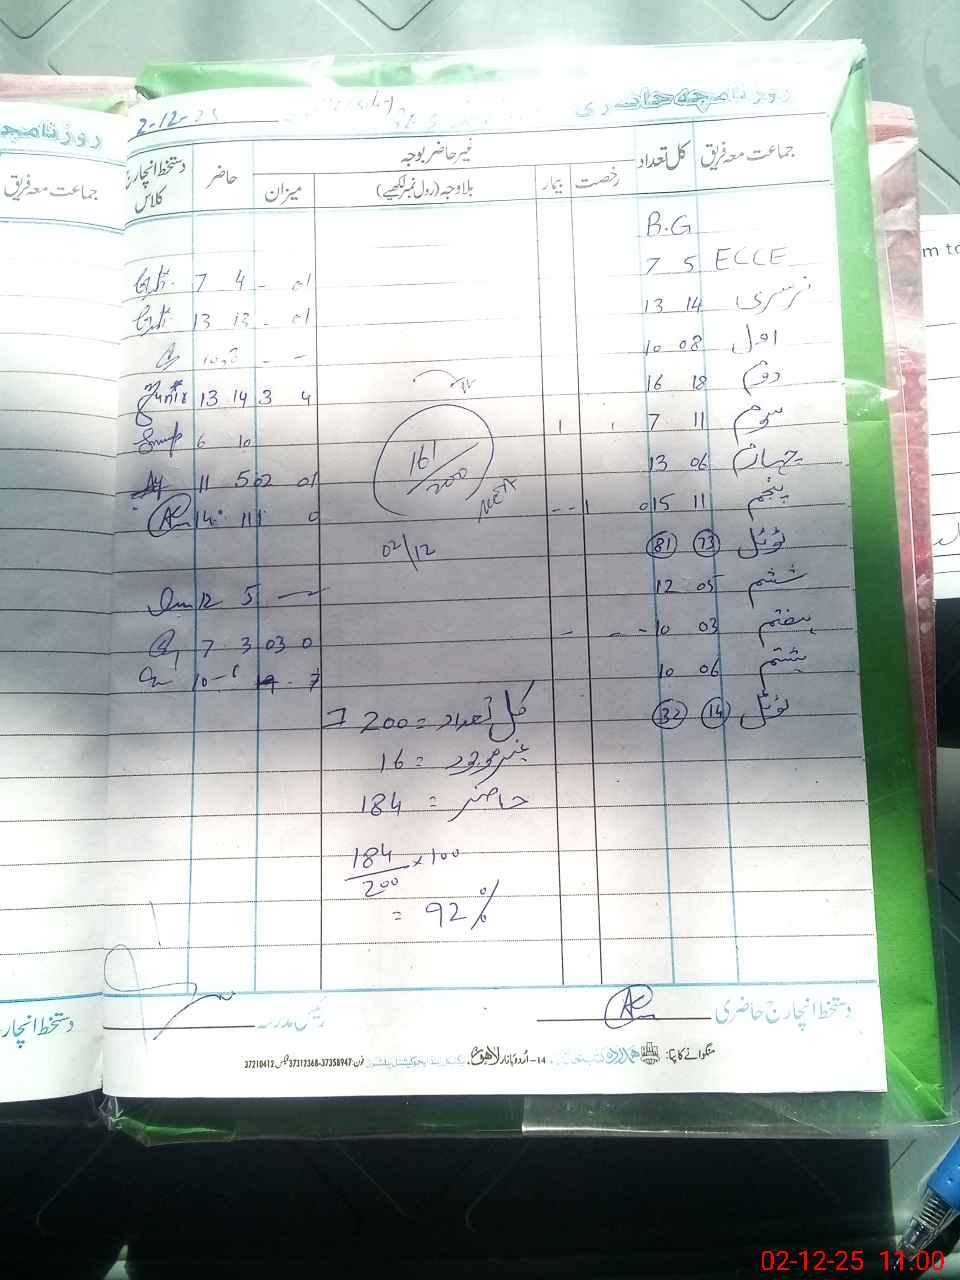 روزنامچہ حاضری
2-12-25
جماعت معہ فریق کل تعداد غیر حاضر بوجہ حاضر دستخط انچارج کلاس
رخصت بیمار بلاوجہ (رول نمبر لکھیے) میزان
B.G
ECCE 5 7 01 - 4 7
نرسری 14 13 01 - 13 13
اول 08 10 - -
دوم 18 16 4 3 14 13
سوم 11 7 10 6
چہارم 06 13 01 02 5 11
پنجم 11 15 0 11 14
161/200
ٹوٹل 73 81
02/12
ششم 05 12 5 12
ہفتم 03 10 0 03 3 7
ہشتم 06 10
ٹوٹل 14 32
کل تعداد = 200
غیر موجود = 16
حاضر = 184
184/200 × 100
= 92%
دستخط انچارج حاضری رئیس مدرسہ
منگوانے کا پتا: 14- اُردو بازار لاہور۔ فون: 37358947-37312368 فیکس: 37210412
روزنامچہ
جماعت معہ فریق
دستخط انچارج
02-12-25 11:00